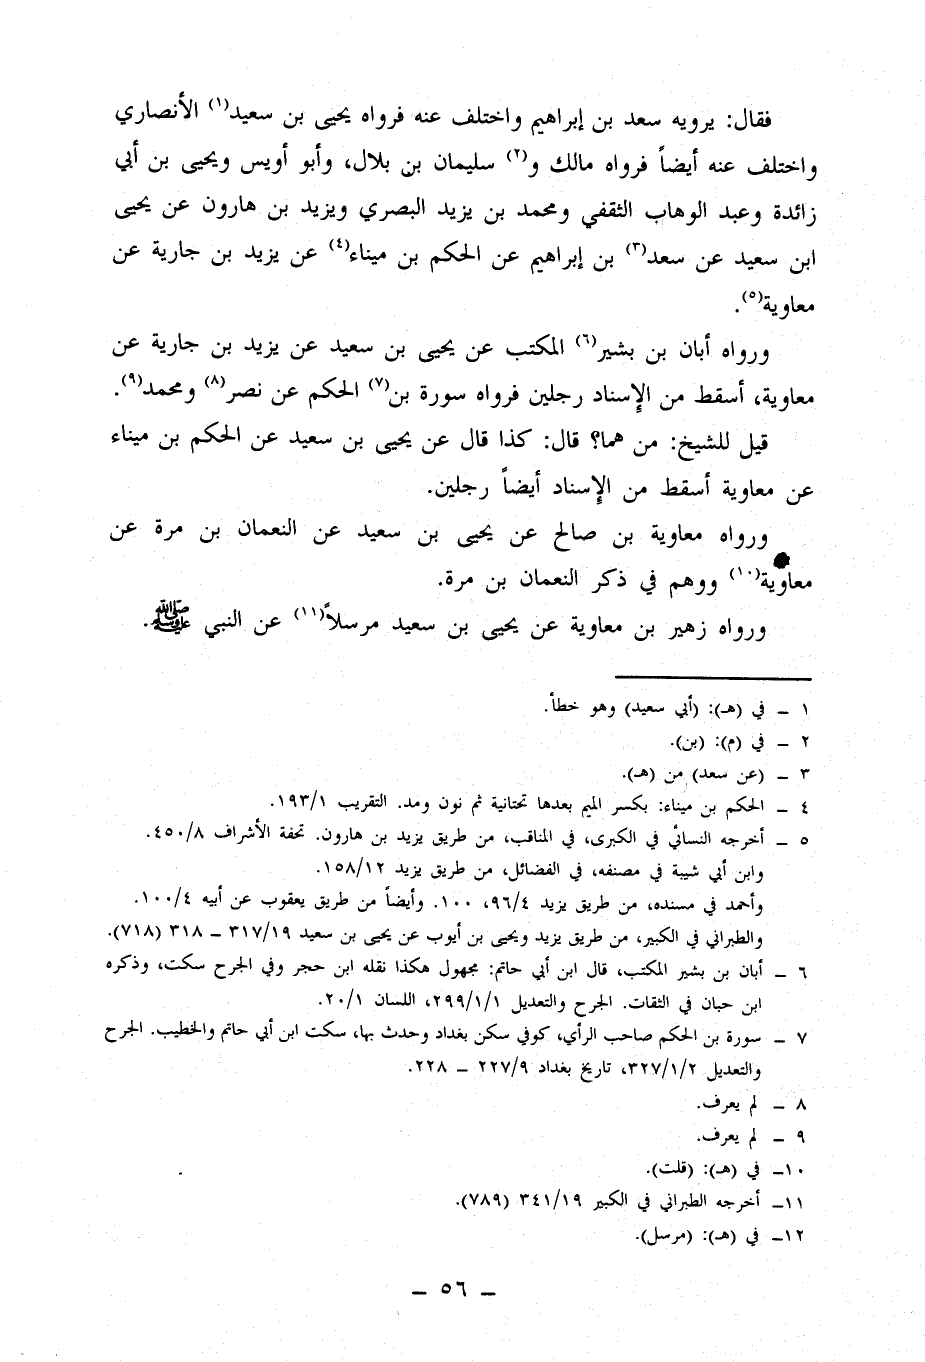 فقال: يرويه سعد بن إبراهيم واختلف عنه فرواه يحيى بن سعيد(١) الأنصاري
واختلف عنه أيضاً فرواه مالك و(٢) سليمان بن بلال، وأبو أويس ويحيى بن أبي
زائدة وعبد الوهاب الثقفي ومحمد بن يزيد البصري ويزيد بن هارون عن يحيى
ابن سعيد عن سعد(٣) بن إبراهيم عن الحكم بن ميناء(٤) عن يزيد بن جارية عن
معاوية(٥).
ورواه أبان بن بشير(٦) المكتب عن يحيى بن سعيد عن يزيد بن جارية عن
معاوية، أسقط من الإسناد رجلين فرواه سورة بن(٧) الحكم عن نصر(٨) ومحمد(٩).
قيل للشيخ: من هما؟ قال: كذا قال عن يحيى بن سعيد عن الحكم بن ميناء
عن معاوية أسقط من الإسناد أيضاً رجلين.
ورواه معاوية بن صالح عن يحيى بن سعيد عن النعمان بن مرة عن
معاوية(١٠) ووهم في ذكر النعمان بن مرة.
ورواه زهير بن معاوية عن يحيى بن سعيد مرسلاً(١١) عن النبي ﷺ.
١ ـ في (هـ): (أبي سعيد) وهو خطأ.
٢ ـ في (م): (بن).
٣ ـ (عن سعد) من (هـ).
٤ ـ الحكم بن ميناء: بكسر الميم بعدها تحتانية ثم نون ومد. التقريب ١٩٣/١.
٥ ـ أخرجه النسائي في الكبرى، في المناقب، من طريق يزيد بن هارون. تحفة الأشراف ٤٥٠/٨.
وابن أبي شيبة في مصنفه، في الفضائل، من طريق يزيد ١٥٨/١٢.
وأحمد في مسنده، من طريق يزيد ٩٦/٤، ١٠٠. وأيضاً من طريق يعقوب عن أبيه ١٠٠/٤.
والطبراني في الكبير، من طريق يزيد ويحيى بن أيوب عن يحيى بن سعيد ٣١٧/١٩ ـ ٣١٨ (٧١٨).
٦ ـ أبان بن بشير المكتب، قال ابن أبي حاتم: مجهول هكذا نقله ابن حجر وفي الجرح سكت، وذكره
ابن حبان في الثقات. الجرح والتعديل ٢٩٩/١/١، اللسان ٢٠/١.
٧ ـ سورة بن الحكم صاحب الرأي، كوفي سكن بغداد وحدث بها، سكت ابن أبي حاتم والخطيب. الجرح
والتعديل ٣٢٧/١/٢، تاريخ بغداد ٢٢٧/٩ ـ ٢٢٨.
٨ ـ لم يعرف.
٩ ـ لم يعرف.
١٠ـ في (هـ): (قلت).
١١ـ أخرجه الطبراني في الكبير ٣٤١/١٩ (٧٨٩).
١٢ـ في (هـ): (مرسل).
ـ ٥٦ ـ